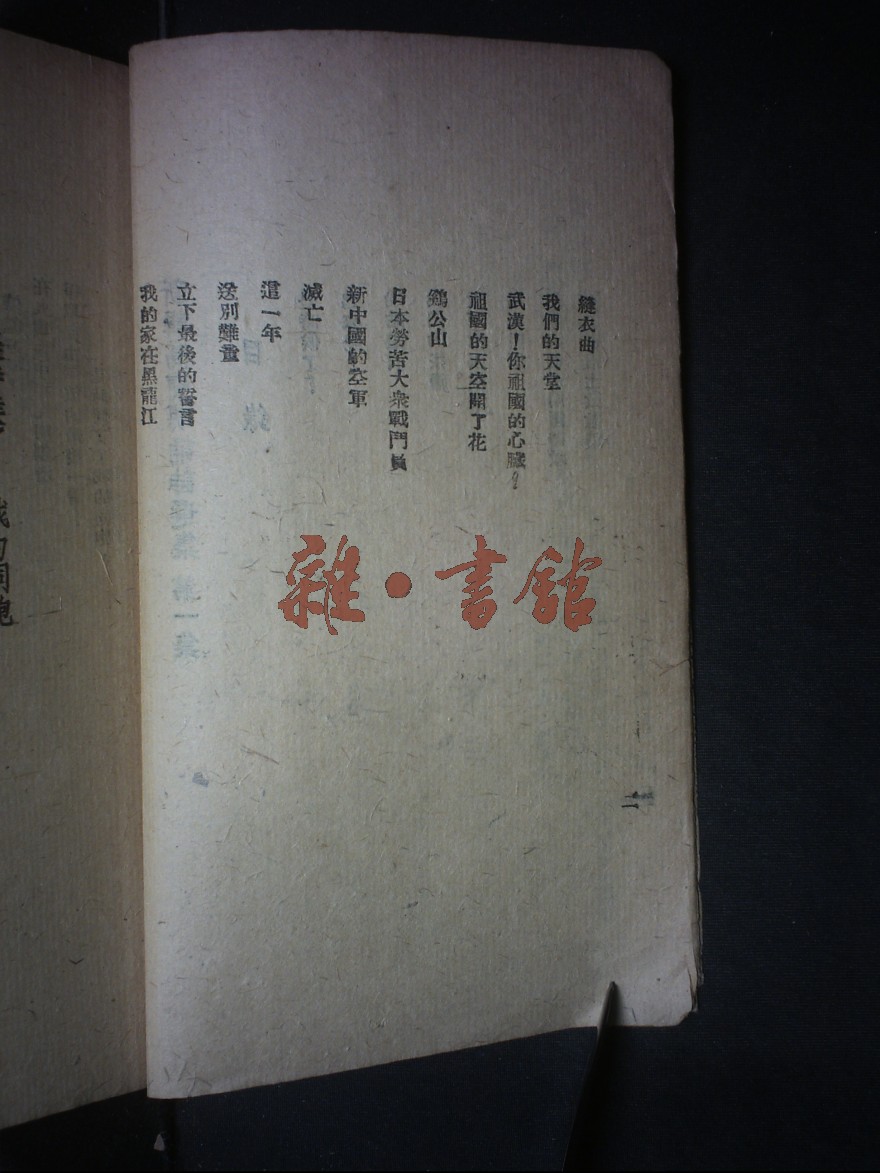 縫衣曲
我們的天堂
武漢!你祖國的心臟!
祖國的天空開了花
鷄公山
日本勞苦大衆戰鬥員
新中國的空軍
滅亡
這一年
送別難童
立下最後的誓言
我的家在黑龍江
二
雜·書館